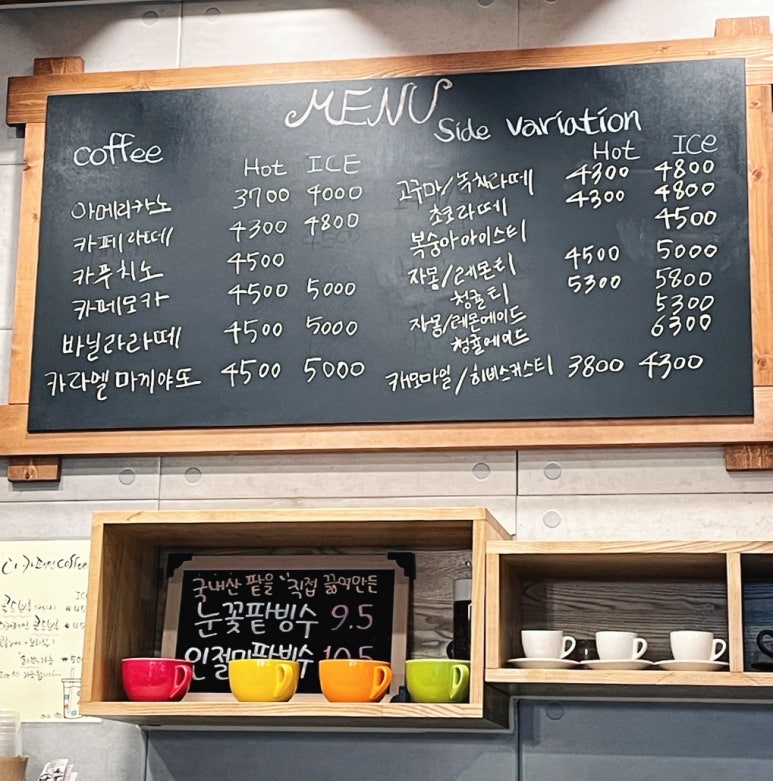 MENU
coffee
Hot ICE
아메리카노 3700 4000
카페라떼 4300 4800
카푸치노 4500
카페모카 4500 5000
바닐라라떼 4500 5000
카라멜 마끼야또 4500 5000
Side variation
Hot ICe
고구마/녹차라떼 4300 4800
초코라떼 4300 4800
복숭아아이스티 4500
자몽/레몬티 4500 5000
청귤티 5300 5800
자몽/레몬에이드 5300
청귤에이드 6300
캐모마일/히비스커스티 3800 4300
국내산 팥을 "직접 끓여만든
눈꽃팥빙수 9.5
인절미팥빙수 10.5
coffee